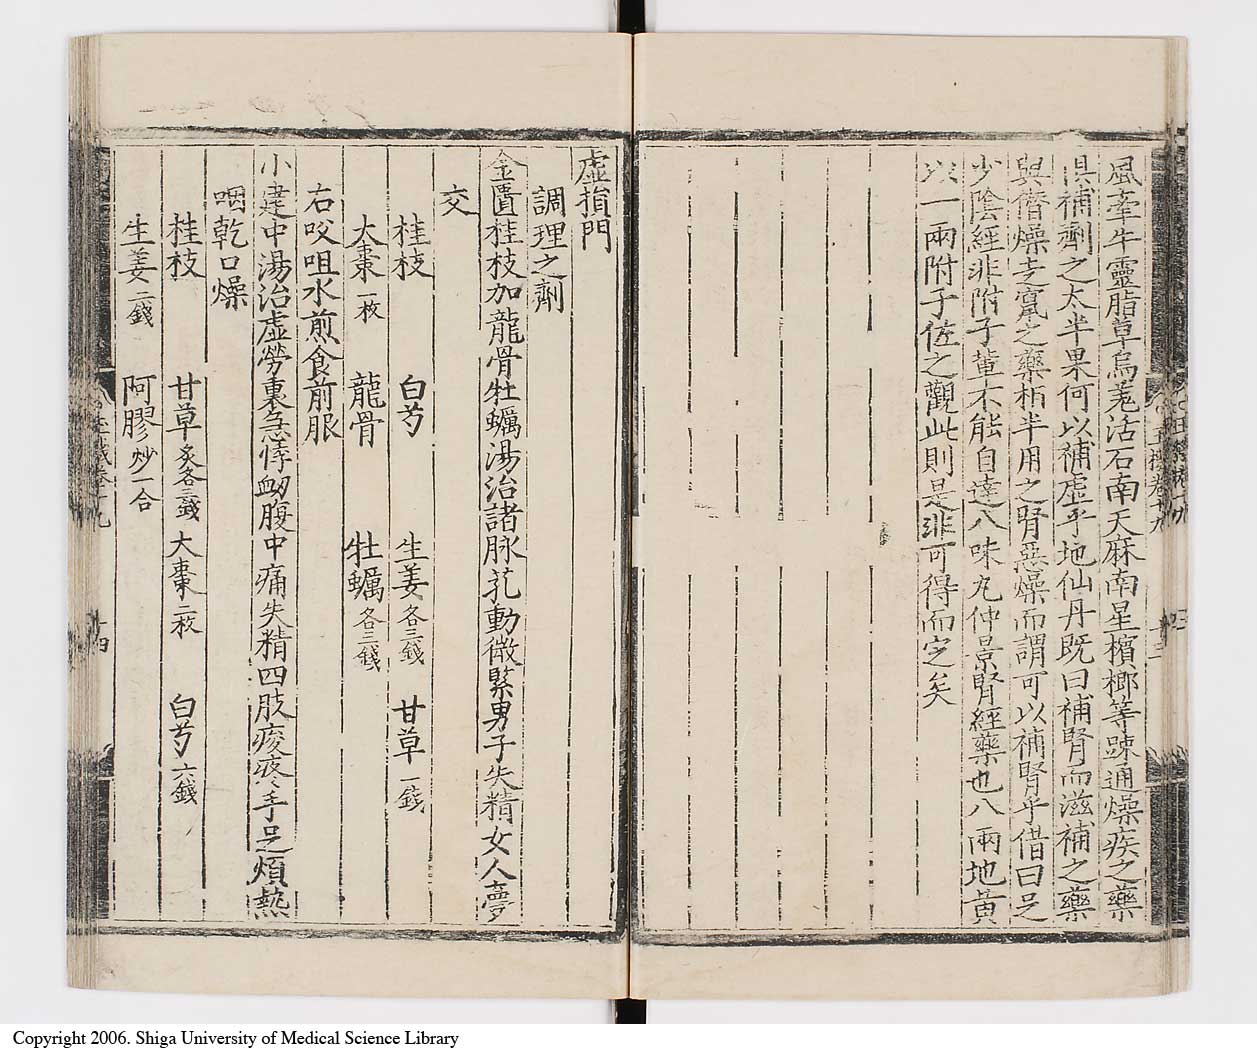 風牽牛靈脂草烏羗活石南天麻南星檳榔等踈通燥疾之藥
俱補劑之太半果何以補虛乎地仙丹既曰補腎而滋補之藥
與僭燥走竄之藥相半用之腎惡燥而謂可以補腎乎借曰足
少陰經非附子軰不能自達八味丸仲景腎經藥也八兩地黃
以一兩附子佐之觀此則是非可得而定矣
虛損門
調理之劑
金匱桂枝加龍骨牡蠣湯治諸脉芤動微緊男子失精女人夢
交
桂枝 白芍 生姜各三錢 甘草一錢
大棗一枚 龍骨 牡蠣各三錢
右㕮咀水煎食前服
小建中湯治虛勞裏急悸衂腹中痛失精四肢痠疼手足煩熱
咽乾口燥
桂枝 甘草炙各三錢 大棗二枚 白芍六錢
生姜二錢 阿膠炒一合
十四
Copyright 2006. Shiga University of Medical Science Library